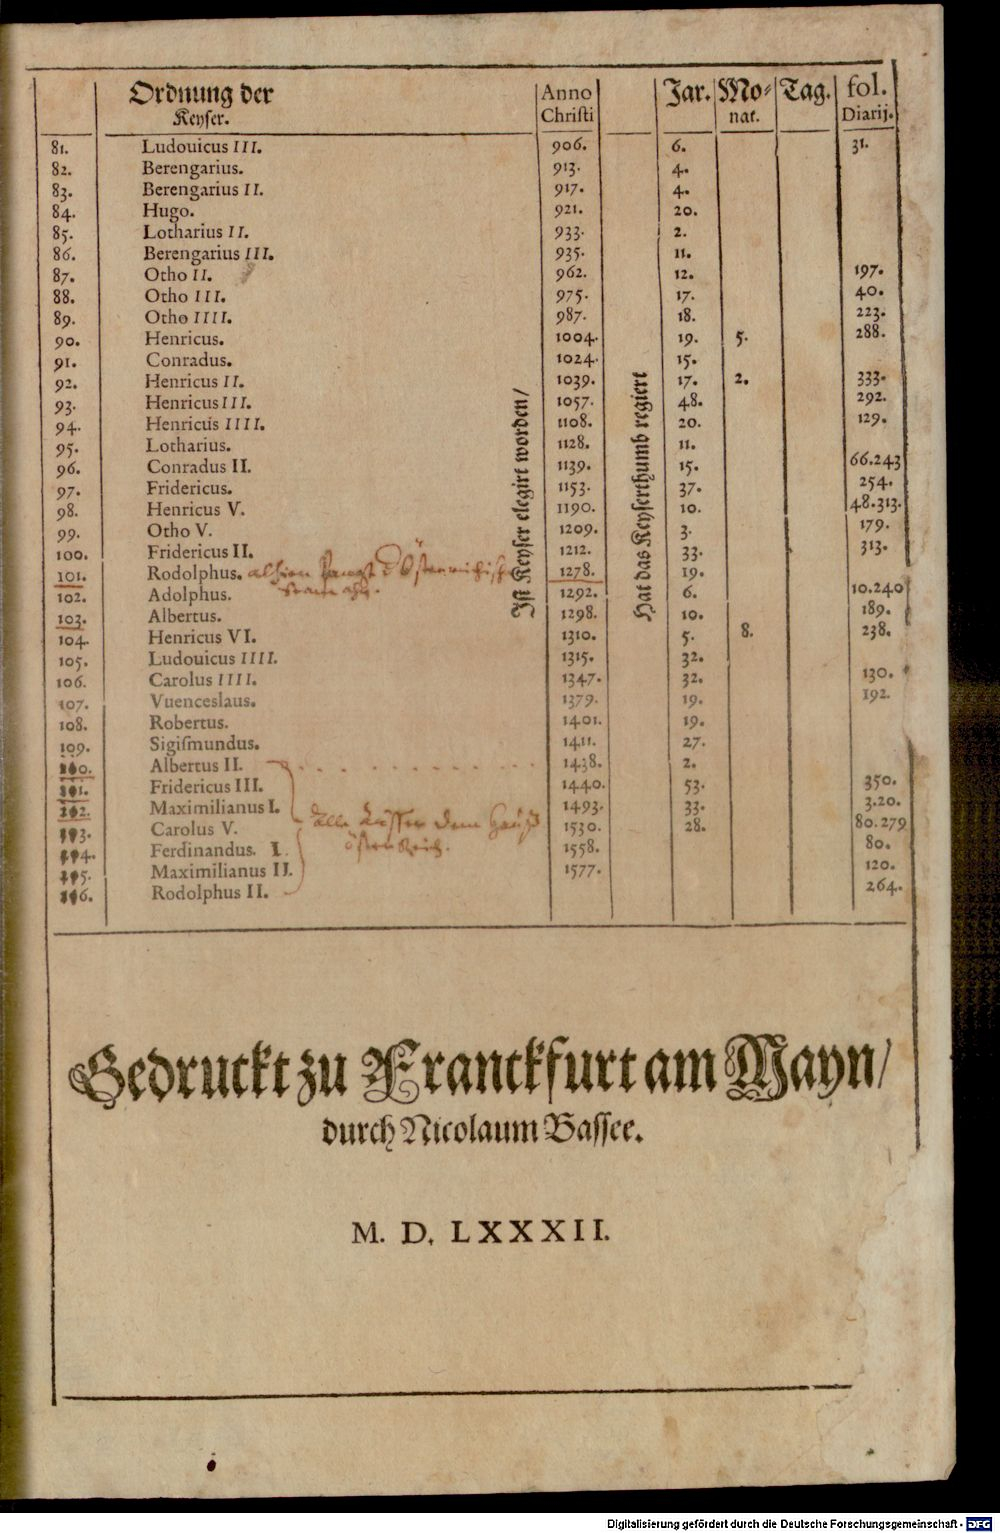 Ordnung der Anno Jar. Mo- Tag. fol.
Keyser. Christi nat. Diarij.
Ist Keyser elegirt worden/
Hat das Keyserthumb regiert
81. Ludouicus III. 906. 6. 31.
82. Berengarius. 913. 4.
83. Berengarius II. 917. 4.
84. Hugo. 921. 20.
85. Lotharius II. 933. 2.
86. Berengarius III. 935. 11.
87. Otho II. 962. 12. 197.
88. Otho III. 975. 17. 40.
89. Otho IIII. 987. 18. 223.
90. Henricus. 1004. 19. 5. 288.
91. Conradus. 1024. 15.
92. Henricus II. 1039. 17. 2. 333.
93. Henricus III. 1057. 48. 292.
94. Henricus IIII. 1108. 20. 129.
95. Lotharius. 1128. 11.
96. Conradus II. 1139. 15. 66.243
97. Fridericus. 1153. 37. 254.
98. Henricus V. 1190. 10. 48.313.
99. Otho V. 1209. 3. 179.
100. Fridericus II. 1212. 33. 313.
101. Rodolphus. 1278. 19.
102. Adolphus. 1292. 6. 10.240
103. Albertus. 1298. 10. 189.
104. Henricus VI. 1310. 5. 8. 238.
105. Ludouicus IIII. 1315. 32.
106. Carolus IIII. 1347. 32. 130.
107. Vuenceslaus. 1379. 19. 192.
108. Robertus. 1401. 19.
109. Sigiſmundus. 1411. 27.
110. Albertus II. 1438. 2.
111. Fridericus III. 1440. 53. 350.
112. Maximilianus I. 1493. 33. 3.20.
113. Carolus V. 1530. 28. 80.279
114. Ferdinandus. I. 1558. 80.
115. Maximilianus II. 1577. 120.
116. Rodolphus II. 264.
Alle Kaysser dem Hauß
Österreich.
Gedruckt zu Franckfurt am Mayn/
durch Nicolaum Bassee.
M. D. LXXXII.
Digitalisierung gefördert durch die Deutsche Forschungsgemeinschaft - DFG